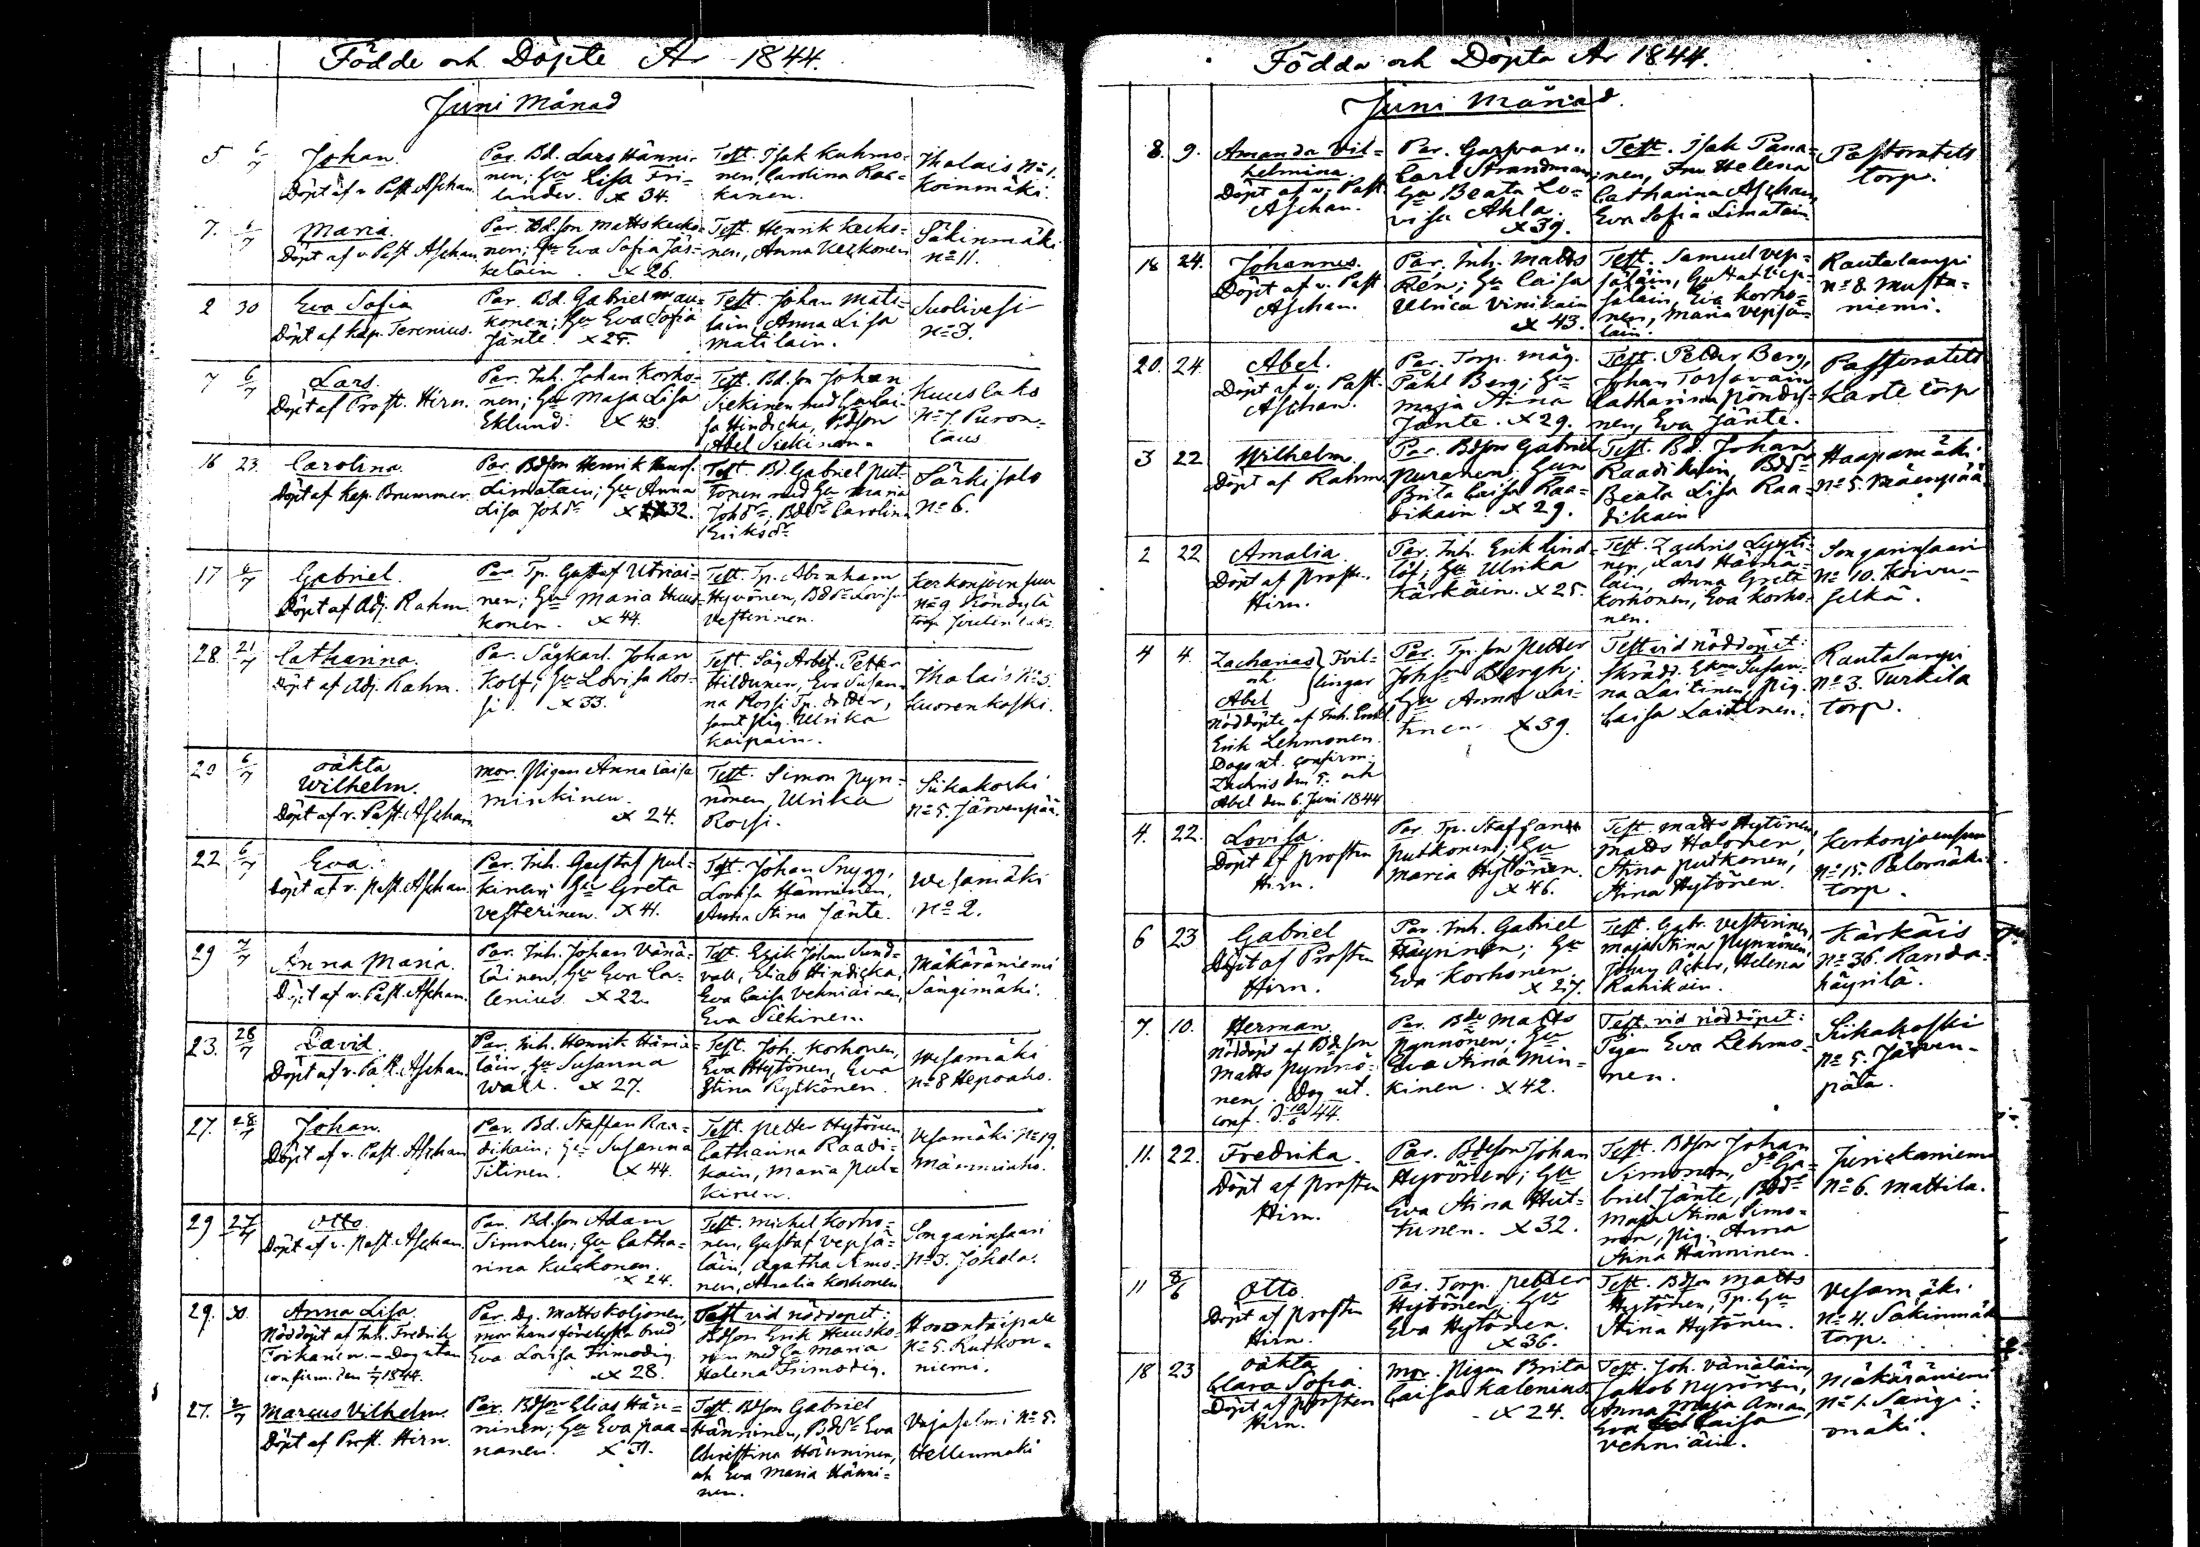 Födde och Döpte År 1844.
Juni Månad
5 6/7 Johan.
Döpt af v. Past. Aschan.
Par. Bd. Lars Hänni-
nen; Hu Lisa Fri-
lander. × 34.
Test. Isak Kuhmo-
nen, Carolina Ras-
kanen.
Ihalais No 1.
Koinmäki.
7. 6/7 Maria.
Döpt af v. Past. Aschan.
Par. Bd.son Matts Kecko-
nen; Hu Eva Sofia Jäs-
keläin. × 26.
Test. Henrik Kecko-
nen, Anna Keckonen
Säkinmäki
No 11.
2 30 Eva Sofia
Döpt af Kap. Terenius.
Par. Bd. Gabriel Mau-
konen; Hu Eva Sofia
Jänte.
Test. Johan Mati-
lain, Anna Lisa
Matilain.
Suolivesi
No 3.
7 6/7 Lars.
Döpt af Prost. Hirn.
Par. Inh. Johan Korho-
nen; Hu Maja Lisa
Eklund. × 43.
Test. Bd.son Johan
Siekinen med Hu Cai-
sa Hindicka, Bdson
Abel Siekinen.
Kuuslaks
No 7. Puron-
laus
16 23. Carolina.
Döpt af Kap. Brummer.
Par. Bdson Henrik
Limatain; Hu Anna
Lisa Johdr × 32.
Test. Bd. Gabriel Put-
tonen med Hu Maria
Johdr, Bddr Carolina
Eriksdr
Särkisalo
No 6.
17 6/7 Gabriel.
Döpt af Adj. Rahm.
Par. Tp. Gustaf Utriai-
nen; Hu Maria Huus-
konen. × 44.
Test. Tp. Abraham
Hyvönen, Bddr Lovisa
Vesterinen.
Kerkonjoensuu
No 9 Pöndylä
torp
28. 21/7 Catharina.
Döpt af Adj. Rahm.
Par. Sågkarl. Johan
Kolf; Hu Lovisa Ros-
si. × 33.
Test. Såg Arbet. Petter
Hildunen, Eva Susan-
na Rossi Tp. dotter,
samt Pig. Ulrika
Kaipain.
Ihalais No 5.
Kuorenkoski.
20 6/7 oäkta
Wilhelm.
Döpt af v. Past. Aschan
Mor. Pigan Anna Caisa
Minkinen.
× 24.
Test. Simon Pyn-
nönen, Ulrika
Rossi.
Siikakoski
No 5. Järvenpää.
22 6/7 Eva.
Döpt af v. Past. Aschan
Par. Inh. Gustaf Pul-
kinen; Hu Greta
Vesterinen. × 41.
Test. Johan Snygg,
Lovisa Hänninen,
Anna Stina Jänte.
Wesamäki
No 2.
29 7/7 Anna Maria.
Döpt af v. Past. Aschan.
Par. Inh. Johan Vänä-
läinen, Hu Eva Ca-
lenius. × 22.
Test. Erik Johan Sund-
vall, Elias Hindicka,
Eva Caisa Vehniäinen,
Eva Siekinen.
Mäkäräniemi
Sängimäki.
23. 28/7 David.
Döpt af v. Past. Aschan.
Par. Inh. Henrik Hämä-
läin, Hu Susanna
Wall. × 27.
Test. Joh. Korhonen,
Eva Hytönen, Eva
Stina Rytkönen.
Wesamäki
No 8 Hepoaho.
27. 28/7 Johan.
Döpt af v. Past. Aschan
Par. Bd. Staffan Raa-
dikain; Hu Susanna
Titinen. × 44.
Test. Petter Hytönen
Catharina Raadi-
kain, Maria Pul-
kinen.
Vesamäki No 19.
Männinaho.
29 27/7 Otto.
Döpt af v. Past. Aschan.
Par. Bd.son Adam
Simonen; Hu Catha-
rina Kuckonen.
× 24.
Test. Michel Korho-
nen, Gustaf Vepsä-
läin, Agatha Simo-
nen, Amalia Korhonen
Songarinsaari
No 3. Jokela.
29. 30. Anna Lisa.
Nöddöpt af Inh. Fredrik
Toikanen. – Dog utan
confirm. den 1/7 1844.
Par. Dg. Matts Koljonen,
mor hans förelofvta brud
Eva Lovisa Frimodig
× 28.
Test vid nöddopet:
Bdson Erik Huusko-
nen med Hu Maria
Helena Frimodig.
Hoorntaipale
No 5. Rutkon-
niemi.
27. 2/7 Marcus Vilhelm.
Döpt af Prost. Hirn.
Par. Bdson Elias Hän-
ninen; Hu Eva Paa-
nanen. × 31.
Test. Bdson Gabriel
Hänninen, Bddr Eva
Christina Hänninen,
och Eva Maria Hänni-
nen.
Vajasalmi No 5.
Hellunmäki
Födda och Döpta År 1844.
Juni Månad.
8. 9. Amanda Vil-
helmina.
Döpt af v. Past
Aschan.
Par. Garfvaren
Carl Strandman,
Hu Beata Lo-
visa Ahla.
× 39.
Test. Isak Pana-
inen, Fru Helena
Catharina Aschan,
Eva Sofia Limatain
Pastoratets
torp.
18 24. Johannes.
Döpt af v. Past
Aschan.
Par. Inh. Matts
Rén; Hu Caisa
Ulrica Vinikain
× 43.
Test. Samuel Vep-
säläin, Gustaf Vep-
säläin, Eva Korho-
nen, Maria Vepsä-
läin.
Rautalampi
No 8. Musta-
niemi.
20. 24. Abel.
Döpt af v. Past.
Aschan.
Par. Torp. måg.
Påhl Berg; Hu
Maja Stina
Jänte. × 29.
Test. Petter Berg,
Johan Torsavain,
Catharina Pöndy-
nen, Eva Jänte.
Pastoratets
Karte torp
3 22 Wilhelm.
Döpt af Rahm
Par. Bdson Gabriel
Puranen; Hun
Brita Caisa Raa-
dikain. × 29.
Test. Bd. Johan
Raadikain, Bddr
Beata Lisa Raa-
dikain
Haapamäki
No 5. Mäenpää.
2 22 Amalia.
Döpt af Prosten
Hirn.
Par. Inh. Erik Lind-
löf; Hu Ulrika
Kärkäin. × 25.
Test. Zachris Lyyti-
nen, Lars Hämä-
läin, Anna Greta
Korhonen, Eva Korho-
nen.
Songarinsaari
No 10. Koivu-
selkä.
4 4. Zacharias
och
Abel
Tvil-
lingar
Nöddöpte af Inh. Enkl.
Erik Lehmonen.
Dogo ut. confirm.
Zachris den 5. och
Abel den 6. Juni 1844
Par. Tp. son Petter
Johsn Bergh;
Hu Anna Lai-
tinen. × 39.
Test vid nöddopet:
Skrädd. Ekan Susan-
na Laitinen, Pig.
Caisa Laitinen.
Rautalampi
No 3. Turkila
torp.
4. 22. Lovisa.
Döpt af Prosten
Hirn.
Par. Tp. Staffan
Putkonen; Hu
Maria Hytönen.
× 46.
Test. Matts Hytönen,
Matts Halonen,
Stina Putkonen,
Stina Hytönen.
Kerkonjoensuu
No 15. Palomäki
torp.
6 23 Gabriel
Döpt af Prosten
Hirn.
Par. Inh. Gabriel
Häyrinen; Hu
Eva Korhonen.
× 27.
Test. Gabr. Vesterinen,
Maja Stina Pynnönen,
Johan Äcker, Helena
Rahikain.
Kärkäis
No 36. Randa-
häyrilä.
7. 10. Herman.
Nöddöpt af Bdson
Matts Pynnö-
nen. Dog ut.
conf. d. 10/6 44.
Par. Bde Matts
Pynnönen; Hu
Eva Stina Min-
kinen. × 42.
Test. vid nöddopet:
Pigan Eva Lehmo-
nen.
Siikakoski
No 5. Järven-
pää.
11. 22. Fredrika.
Döpt af Prosten
Hirn.
Par. Bdson Johan
Hyvönen; Hu
Eva Stina Hut-
tunen. × 32.
Test. Bdson Johan
Simonen, do Ga-
briel Jänte, Bddr
Maja Stina Simo-
nen, Pig. Anna
Stina Hänninen.
Jurickaniemi
No 6. Mattila.
11 8/6 Otto.
Döpt af Prosten
Hirn.
Par. Torp. Petter
Hytönen; Hu
Eva Hytönen.
× 36.
Test. Bdson Matts
Hytönen, Tp. Hu
Stina Hytönen.
Vesamäki
No 4. Säkinmäki
torp.
18 23 oäkta
Clara Sofia
Döpt af Prosten
Hirn.
Mor. Pigan Brita
Caisa Kalenius.
× 24.
Test. Joh. Vänäläin,
Jakob Nyrönen,
Anna Maja Aman,
Eva Caisa
Vehniäin.
Mäkäräniemi
No 1. Sängi-
mäki.